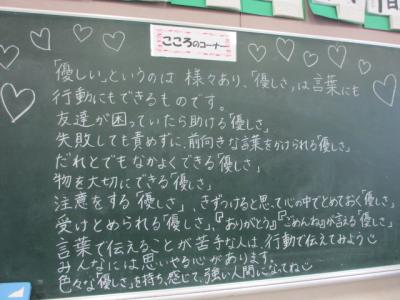 こころのコーナー
「優しい」というのは 様々あり、「優しさ」は言葉にも
行動にもできるものです。
友達が困っていたら助ける「優しさ」
失敗しても責めずに、前向きな言葉をかけられる「優しさ」
だれとでもなかよくできる「優しさ」
物を大切にできる「優しさ」
注意をする「優しさ」、きずつけると思って心の中でとめておく「優しさ」
受けとめられる「優しさ」、『ありがとう』『ごめんね』が言える「優しさ」
言葉で伝えることが苦手な人は、行動で伝えてみよう
みんなには思いやる心があります。
色々な「優しさ」を持ち、感じて、強い人間になってね